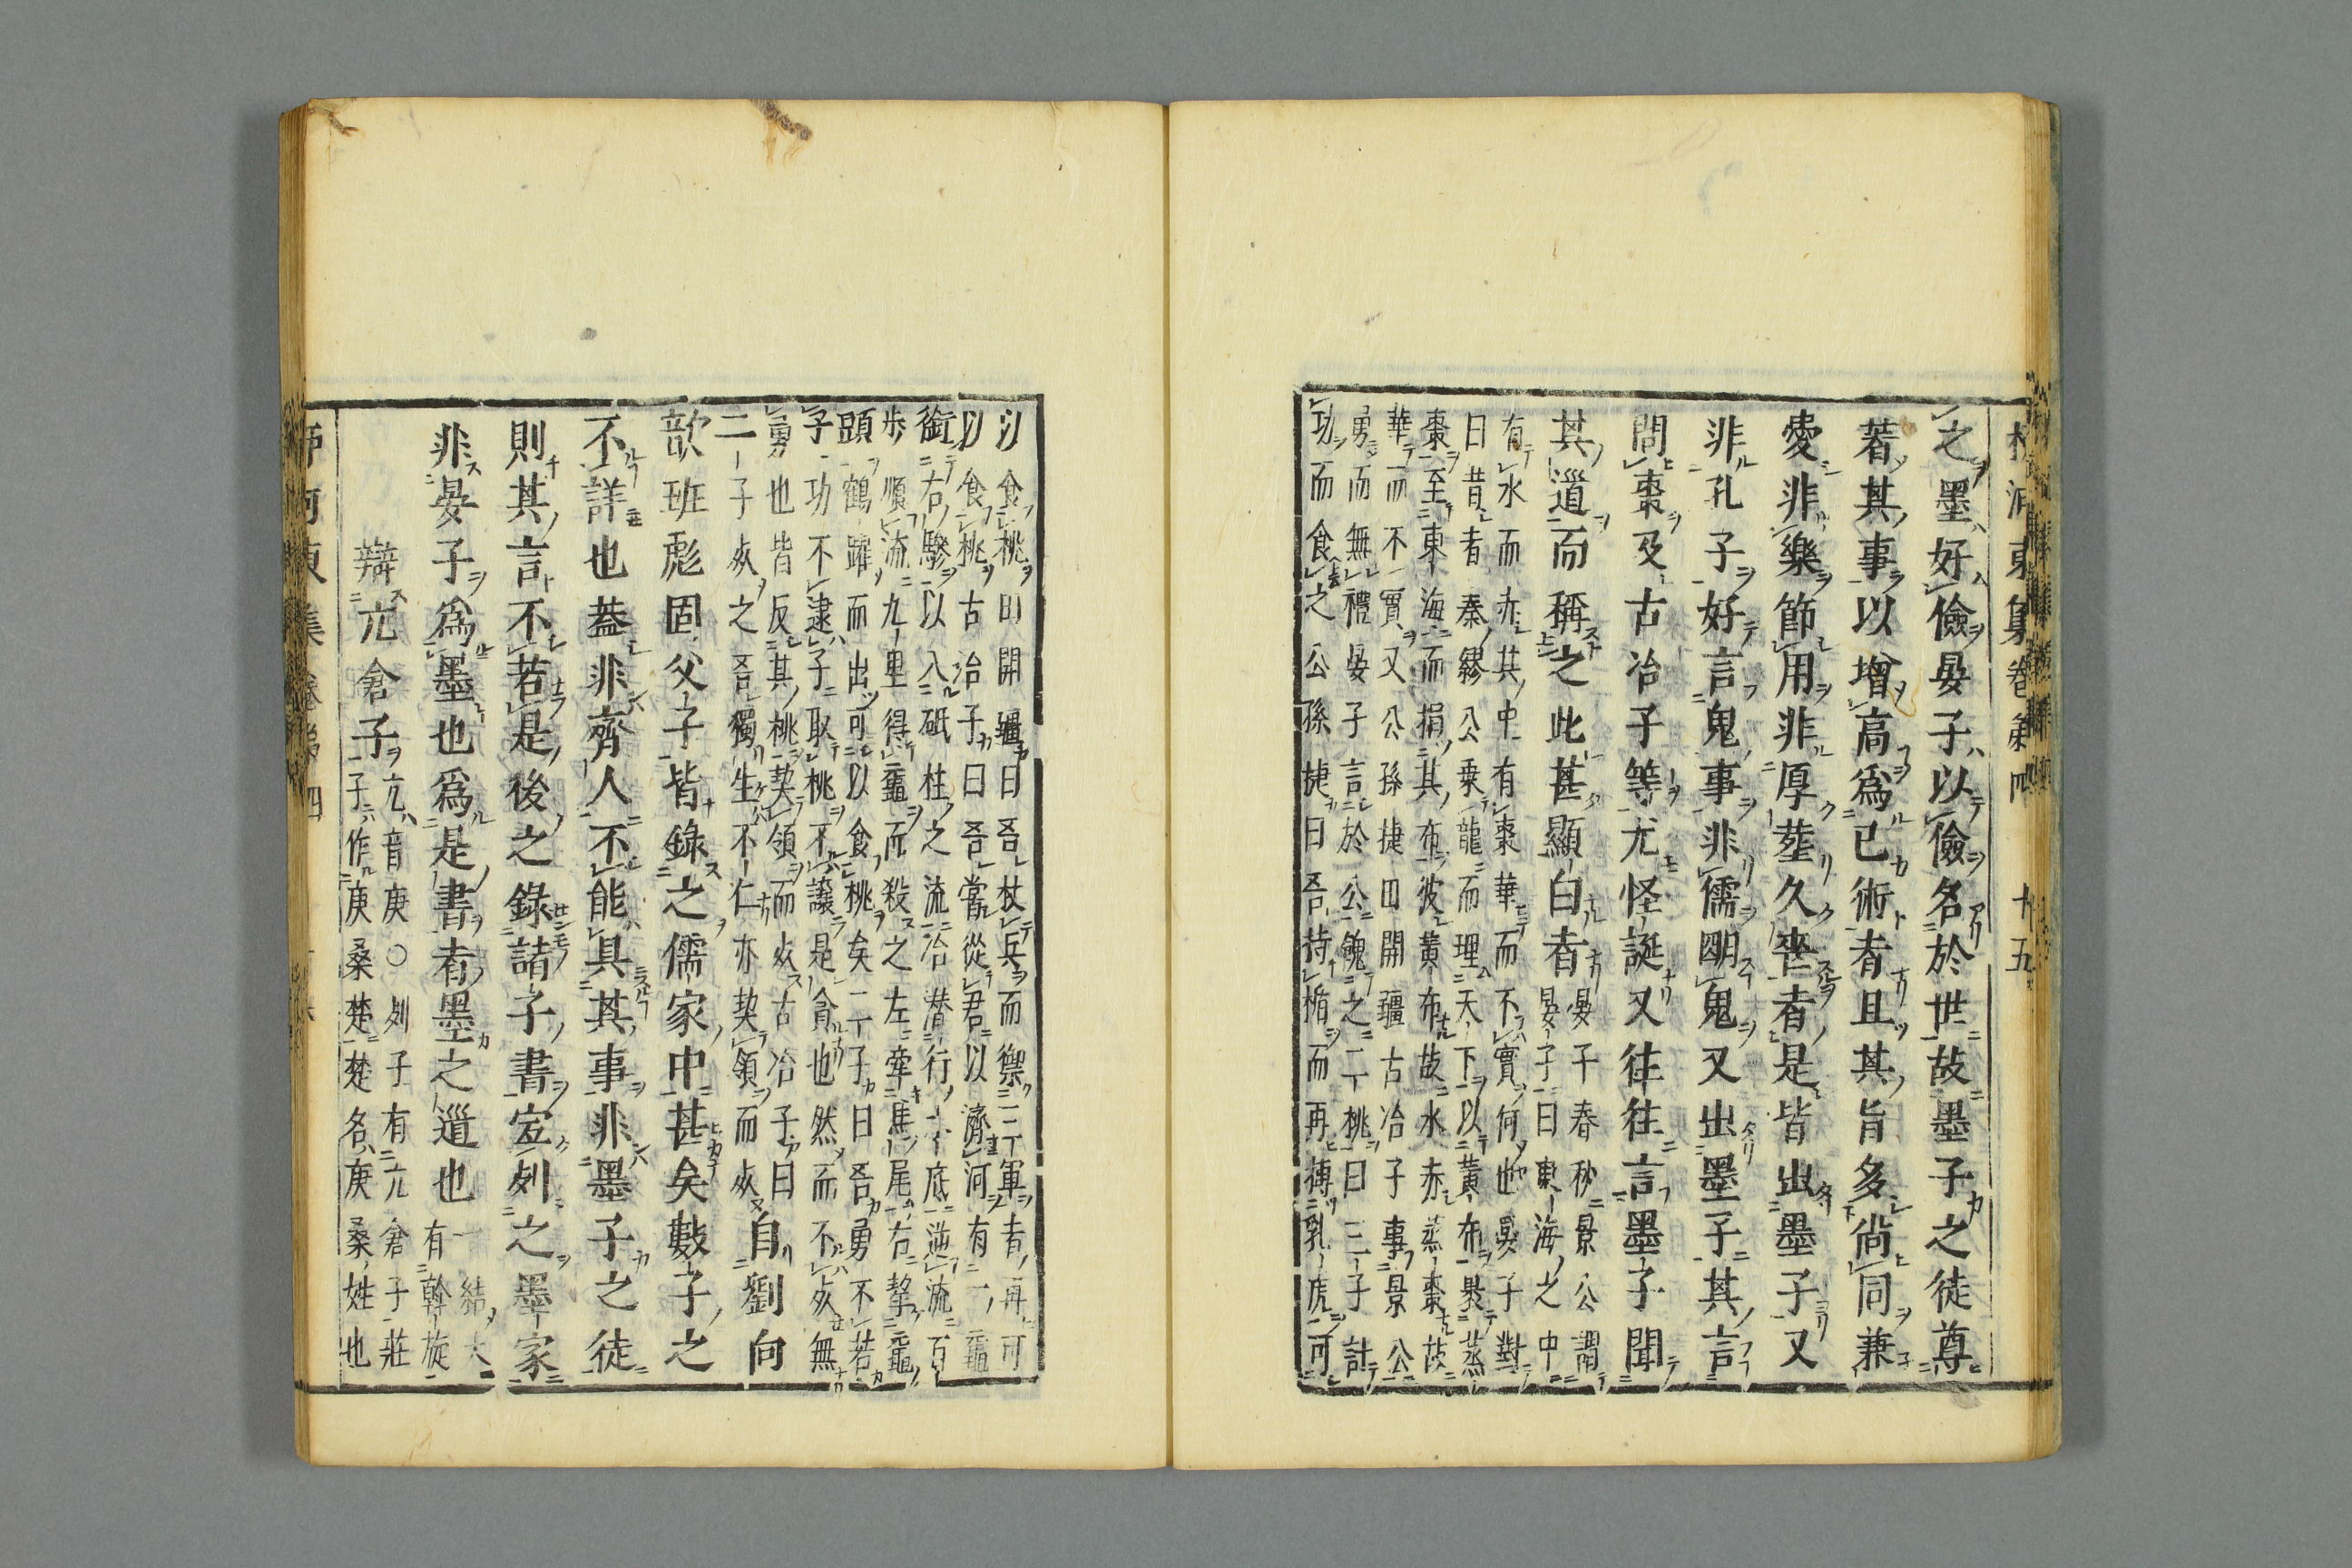 柳河東集卷第四　十五
之墨好儉晏子以儉名於世故墨子之徒尊
著其事以增高爲己術者且其旨多尙同兼
愛非樂節用非厚葬久喪者是皆出墨子又
非孔子好言鬼事非儒明鬼又出墨子其言
問棗及古冶子等尤怪誕又往往言墨子聞
其道而稱之此甚顯白者
晏子春秋景公謂
晏子曰東海之中
有水而赤其中有棗華而不實何也晏子對
曰昔者秦繆公乗龍而理天下以黃布褁蒸
棗至東海而捐其布彼黃布故水赤蒸棗故
華而不實又公孫捷田開疆古冶子事景公
勇而無禮晏子言於公餽之二桃曰三子計
功而食之公孫捷曰吾持楯而再搏乳虎可
以食桃田開疆曰吾杖兵而禦三軍者再可
以食桃古冶子曰吾嘗從君以濟河有一黿
銜右驂以入砥柱之流冶潜行水底逆流百
歩順流九里得黿而殺之左牽馬尾右挈黿
頭鶴躍而出可以食桃矣二子曰吾勇不若
子功不逮子取桃不讓是貪也然而不死無
勇也皆反其桃契領而死古冶子曰
二子死之吾獨生不仁亦契領而死
自劉向
歆班彪固父子皆錄之儒家中甚矣數子之
不詳也蓋非齊人不能具其事非墨子之徒
則其言不若是後之錄諸子書宜列之墨家
非晏子爲墨也爲是書者墨之道也
一結大
有斡旋
辯亢倉子
亢音庚○列子有亢倉子莊
子作庚桑楚楚名庚桑姓也
柳河東集卷第四